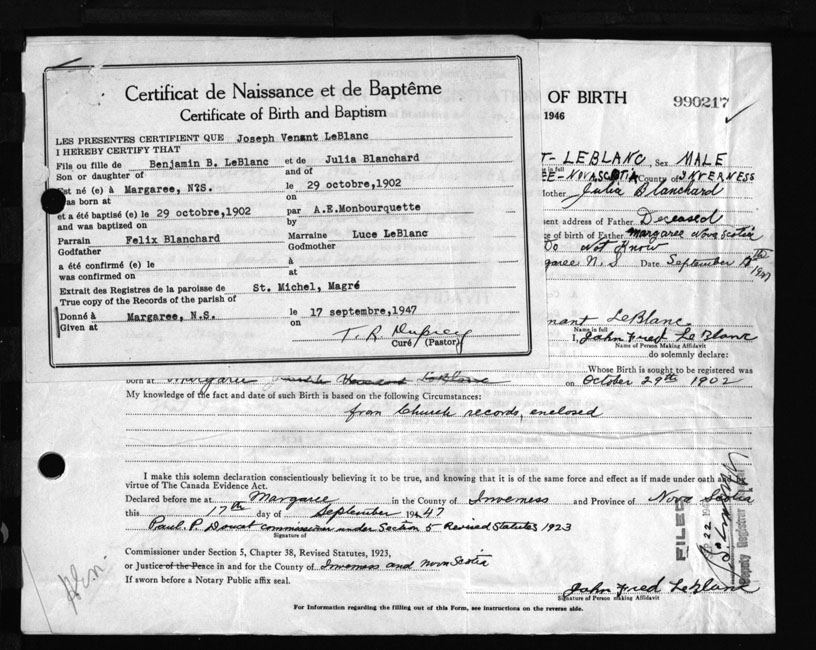 Certificat de Naissance et de Baptême
Certificate of Birth and Baptism
LES PRESENTES CERTIFIENT QUE Joseph Venant LeBlanc
I HEREBY CERTIFY THAT
Fils ou fille de Benjamin B. LeBlanc et de Julia Blanchard
Son or daughter of and of
Est né (e) à Margaree, N?S. le 29 octobre,1902
was born at on
et a été baptisé (e) le 29 octobre,1902 par A.E.Monbourquette
and was baptized on by
Parrain Felix Blanchard Marraine Luce LeBlanc
Godfather Godmother
a été confirmé (e) le à
was confirmed on at
Extrait des Registres de la paroisse de St. Michel, Magré
True copy of the Records of the parish of
Donné à Margaree, N.S. le 17 septembre,1947
Given at on
T. R.
Curé (Pastor)
OF BIRTH 990217
1946
T- LEBLANC, Sex MALE
EE-NOVA SCOTIA County of INVERNESS
Mother Julia Blanchard
sent address of Father Deceased
ce of birth of Father Margaree Nova Scotia
Do Not Know
garee N.S Date September 17th 1947
nant LeBlanc
Name in full
I, John Fred LeBlanc
Name of Person Making Affidavit
do solemnly declare:
Whose Birth is sought to be registered was
born at Margaree LeBlanc on October 29th 1902
My knowledge of the fact and date of such Birth is based on the following Circumstances:
from Church records, enclosed
I make this solemn declaration conscientiously believing it to be true, and knowing that it is of the same force and effect as if made under oath and by
virtue of The Canada Evidence Act.
Declared before me at Margaree in the County of Inverness and Province of Nova Scotia
this 17th day of September 1947
Paul. P. Doucet commission under Section 5 Revised Statutes 1923
Signature of
Commissioner under Section 5, Chapter 38, Revised Statutes, 1923,
or Justice of the Peace in and for the County of Inverness and Nova Scotia
If sworn before a Notary Public affix seal.
John Fred LeBlanc
Signature of Person making Affidavit
For Information regarding the filling out of this Form, see instructions on the reverse side.
FILED
22
Deputy Registrar